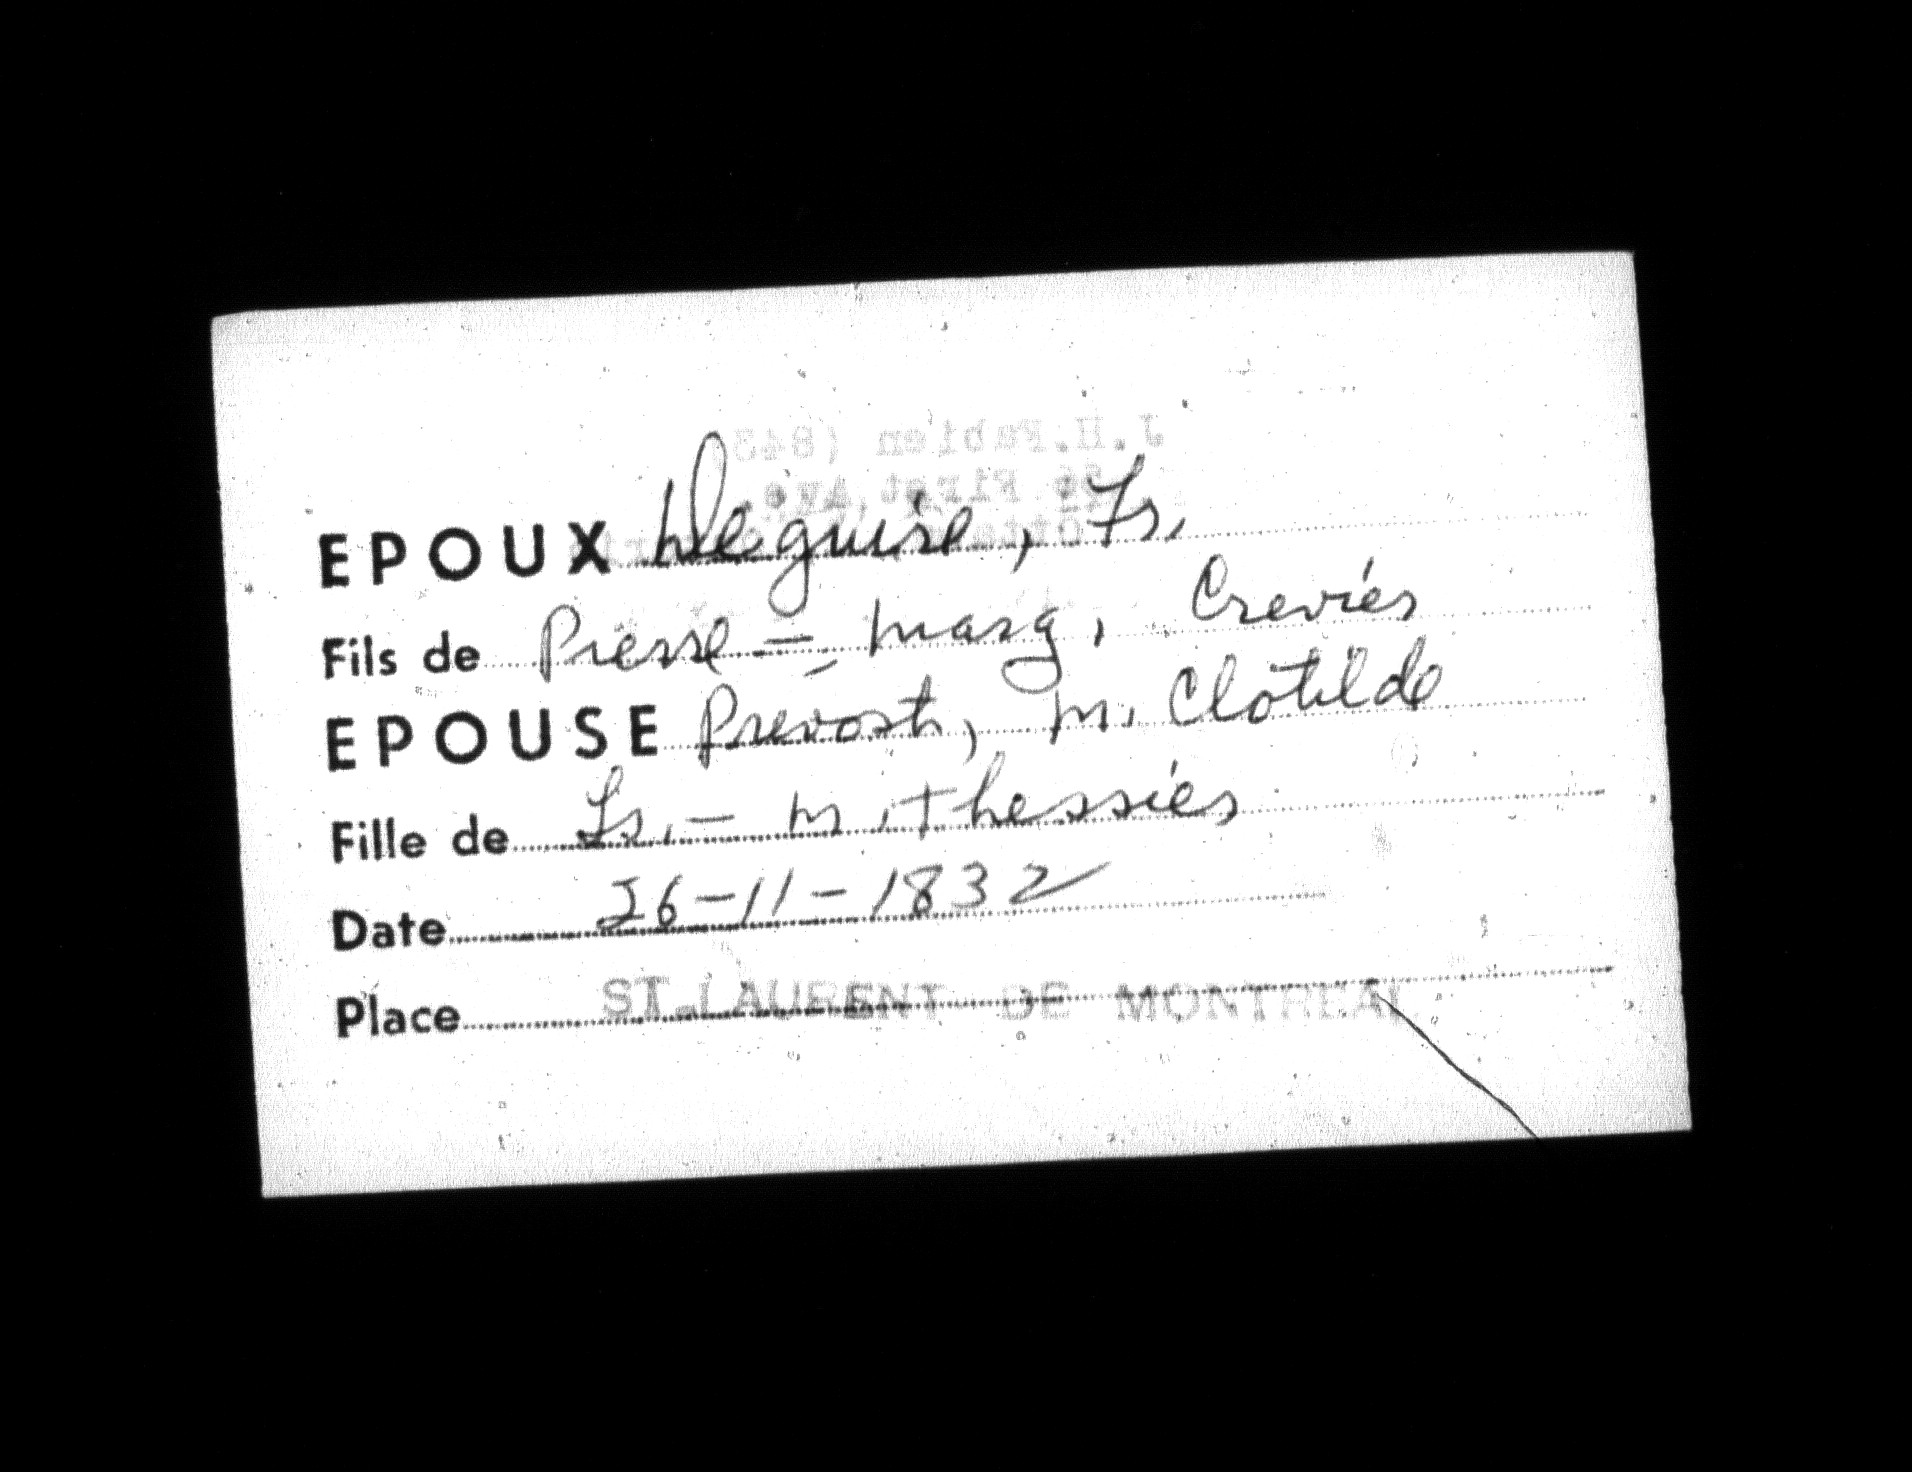 EPOUX Deguire, Fs.
Fils de Pierre - Marg. Crevier
EPOUSE Prevost, M. Clotilde
Fille de Fs. - M. Thessier
Date 26-11-1832
Place ST-LAURENT DE MONTREAL